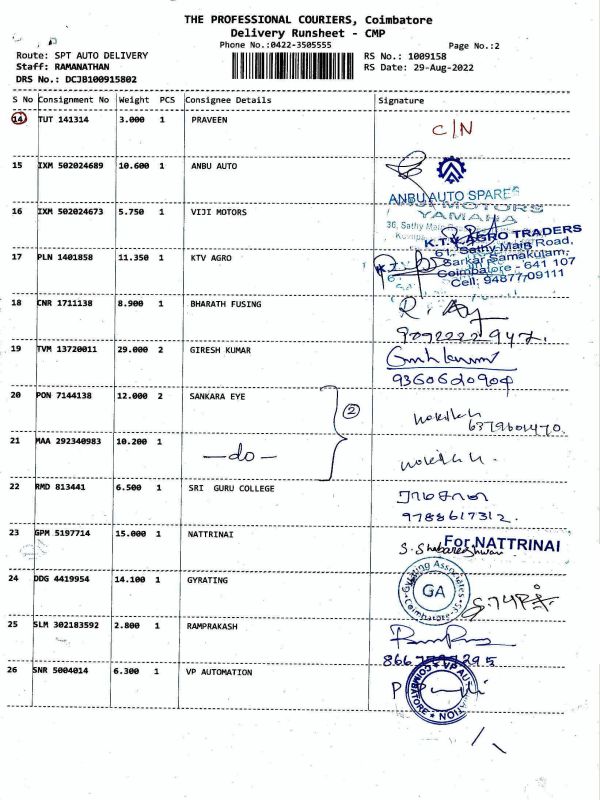 THE PROFESSIONAL COURIERS, Coimbatore
Delivery Runsheet - CMP
Phone No.:0422-3505555
Page No.:2
Route: SPT AUTO DELIVERY
RS No.: 1009158
Staff: RAMANATHAN
RS Date: 29-Aug-2022
DRS No.: DCJB100915802
S No Consignment No Weight PCS Consignee Details Signature
14 TUT 141314 3.000 1 PRAVEEN C/N
15 IXM 502024689 10.600 1 ANBU AUTO
ANBU AUTO SPARES
16 IXM 502024673 5.750 1 VIJI MOTORS
MOTORS
YAMAHA
36, Sathy Main
K.T.V. AGRO TRADERS
61, Sathy Main Road,
17 PLN 1401858 11.350 1 KTV AGRO
Sarkar Samakulam,
Coimbatore - 641 107
Cell: 94877 09111
18 CNR 1711138 8.900 1 BHARATH FUSING
9092222947.
19 TVM 13720011 29.000 2 GIRESH KUMAR
9360620904
20 PON 7144138 12.000 2 SANKARA EYE
2
6379601470.
21 MAA 292340983 10.200 1 —do—
22 RMD 813441 6.500 1 SRI GURU COLLEGE
9788617312.
23 GPM 5197714 15.000 1 NATTRINAI
For NATTRINAI
24 DDG 4419954 14.100 1 GYRATING
Gyrating Associates
GA
Coimbatore-35
25 SLM 302183592 2.800 1 RAMPRAKASH
26 SNR 5004014 6.300 1 VP AUTOMATION